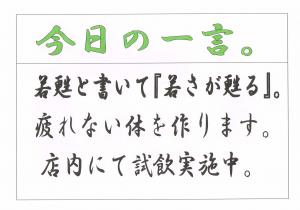 今日の一言。
若甦と書いて『若さが甦る』。
疲れない体を作ります。
店内にて試飲実施中。